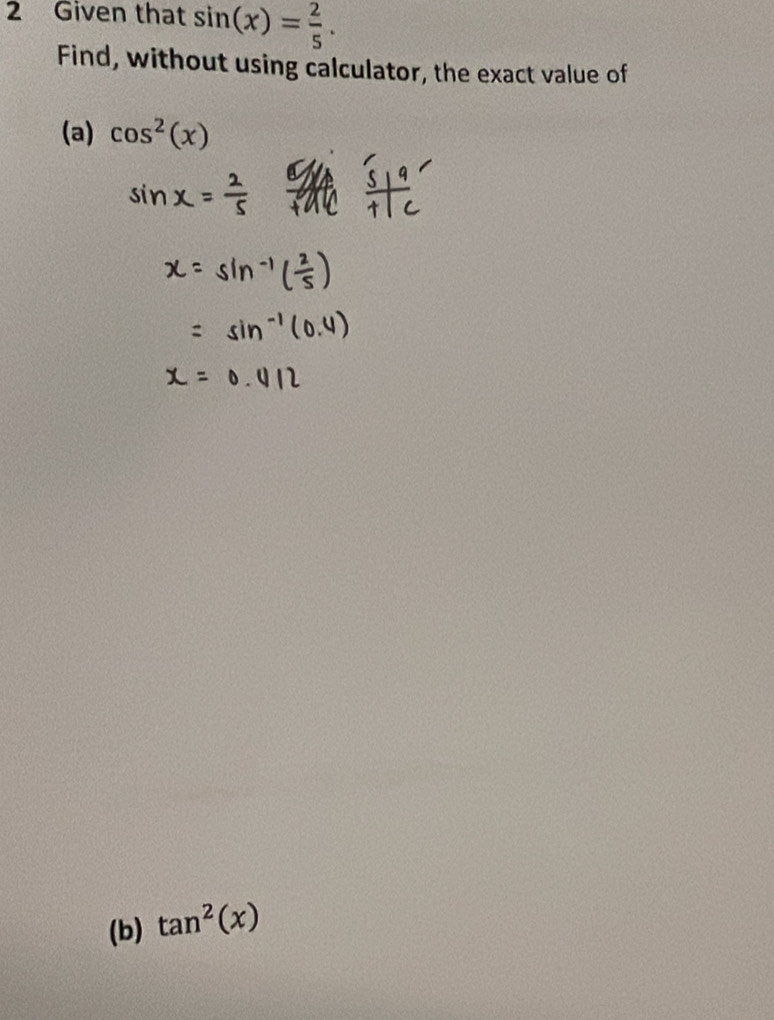 2 Given that sin(x) = 2/5.
Find, without using calculator, the exact value of
(a) cos²(x)
sin x = 2/5 S A T C
x = sin⁻¹(2/5)
= sin⁻¹(0.4)
x = 0.412
(b) tan²(x)